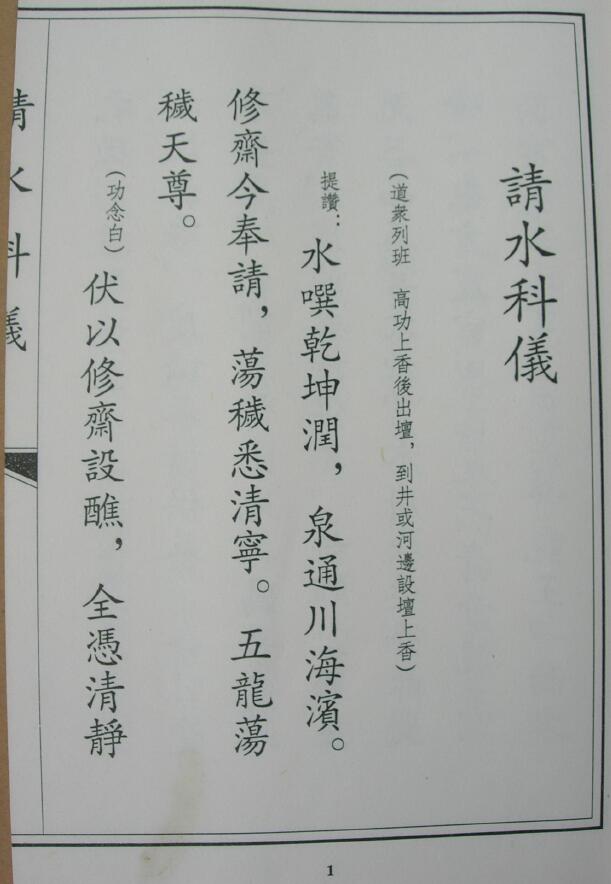 請水科儀
（道衆列班　高功上香後出壇，到井或河邊設壇上香）
提讚：水噀乾坤潤，泉通川海濱。
修齋今奉請，蕩穢悉清寧。五龍蕩
穢天尊。
（功念白）伏以修齋設醮，全憑清靜
請水科儀
1